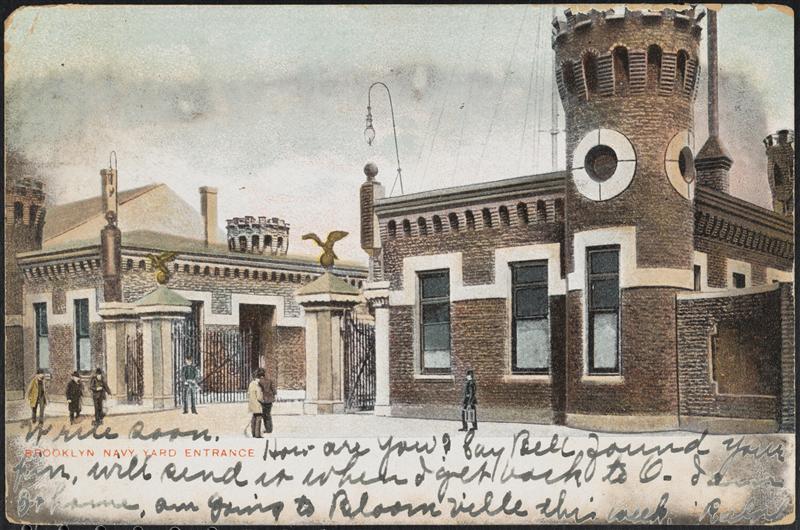 Write soon.
BROOKLYN NAVY YARD ENTRANCE
How are you? Say Bell found your
pin, will send it when I get back to O. I am
at home, am going to Bloomville this week.